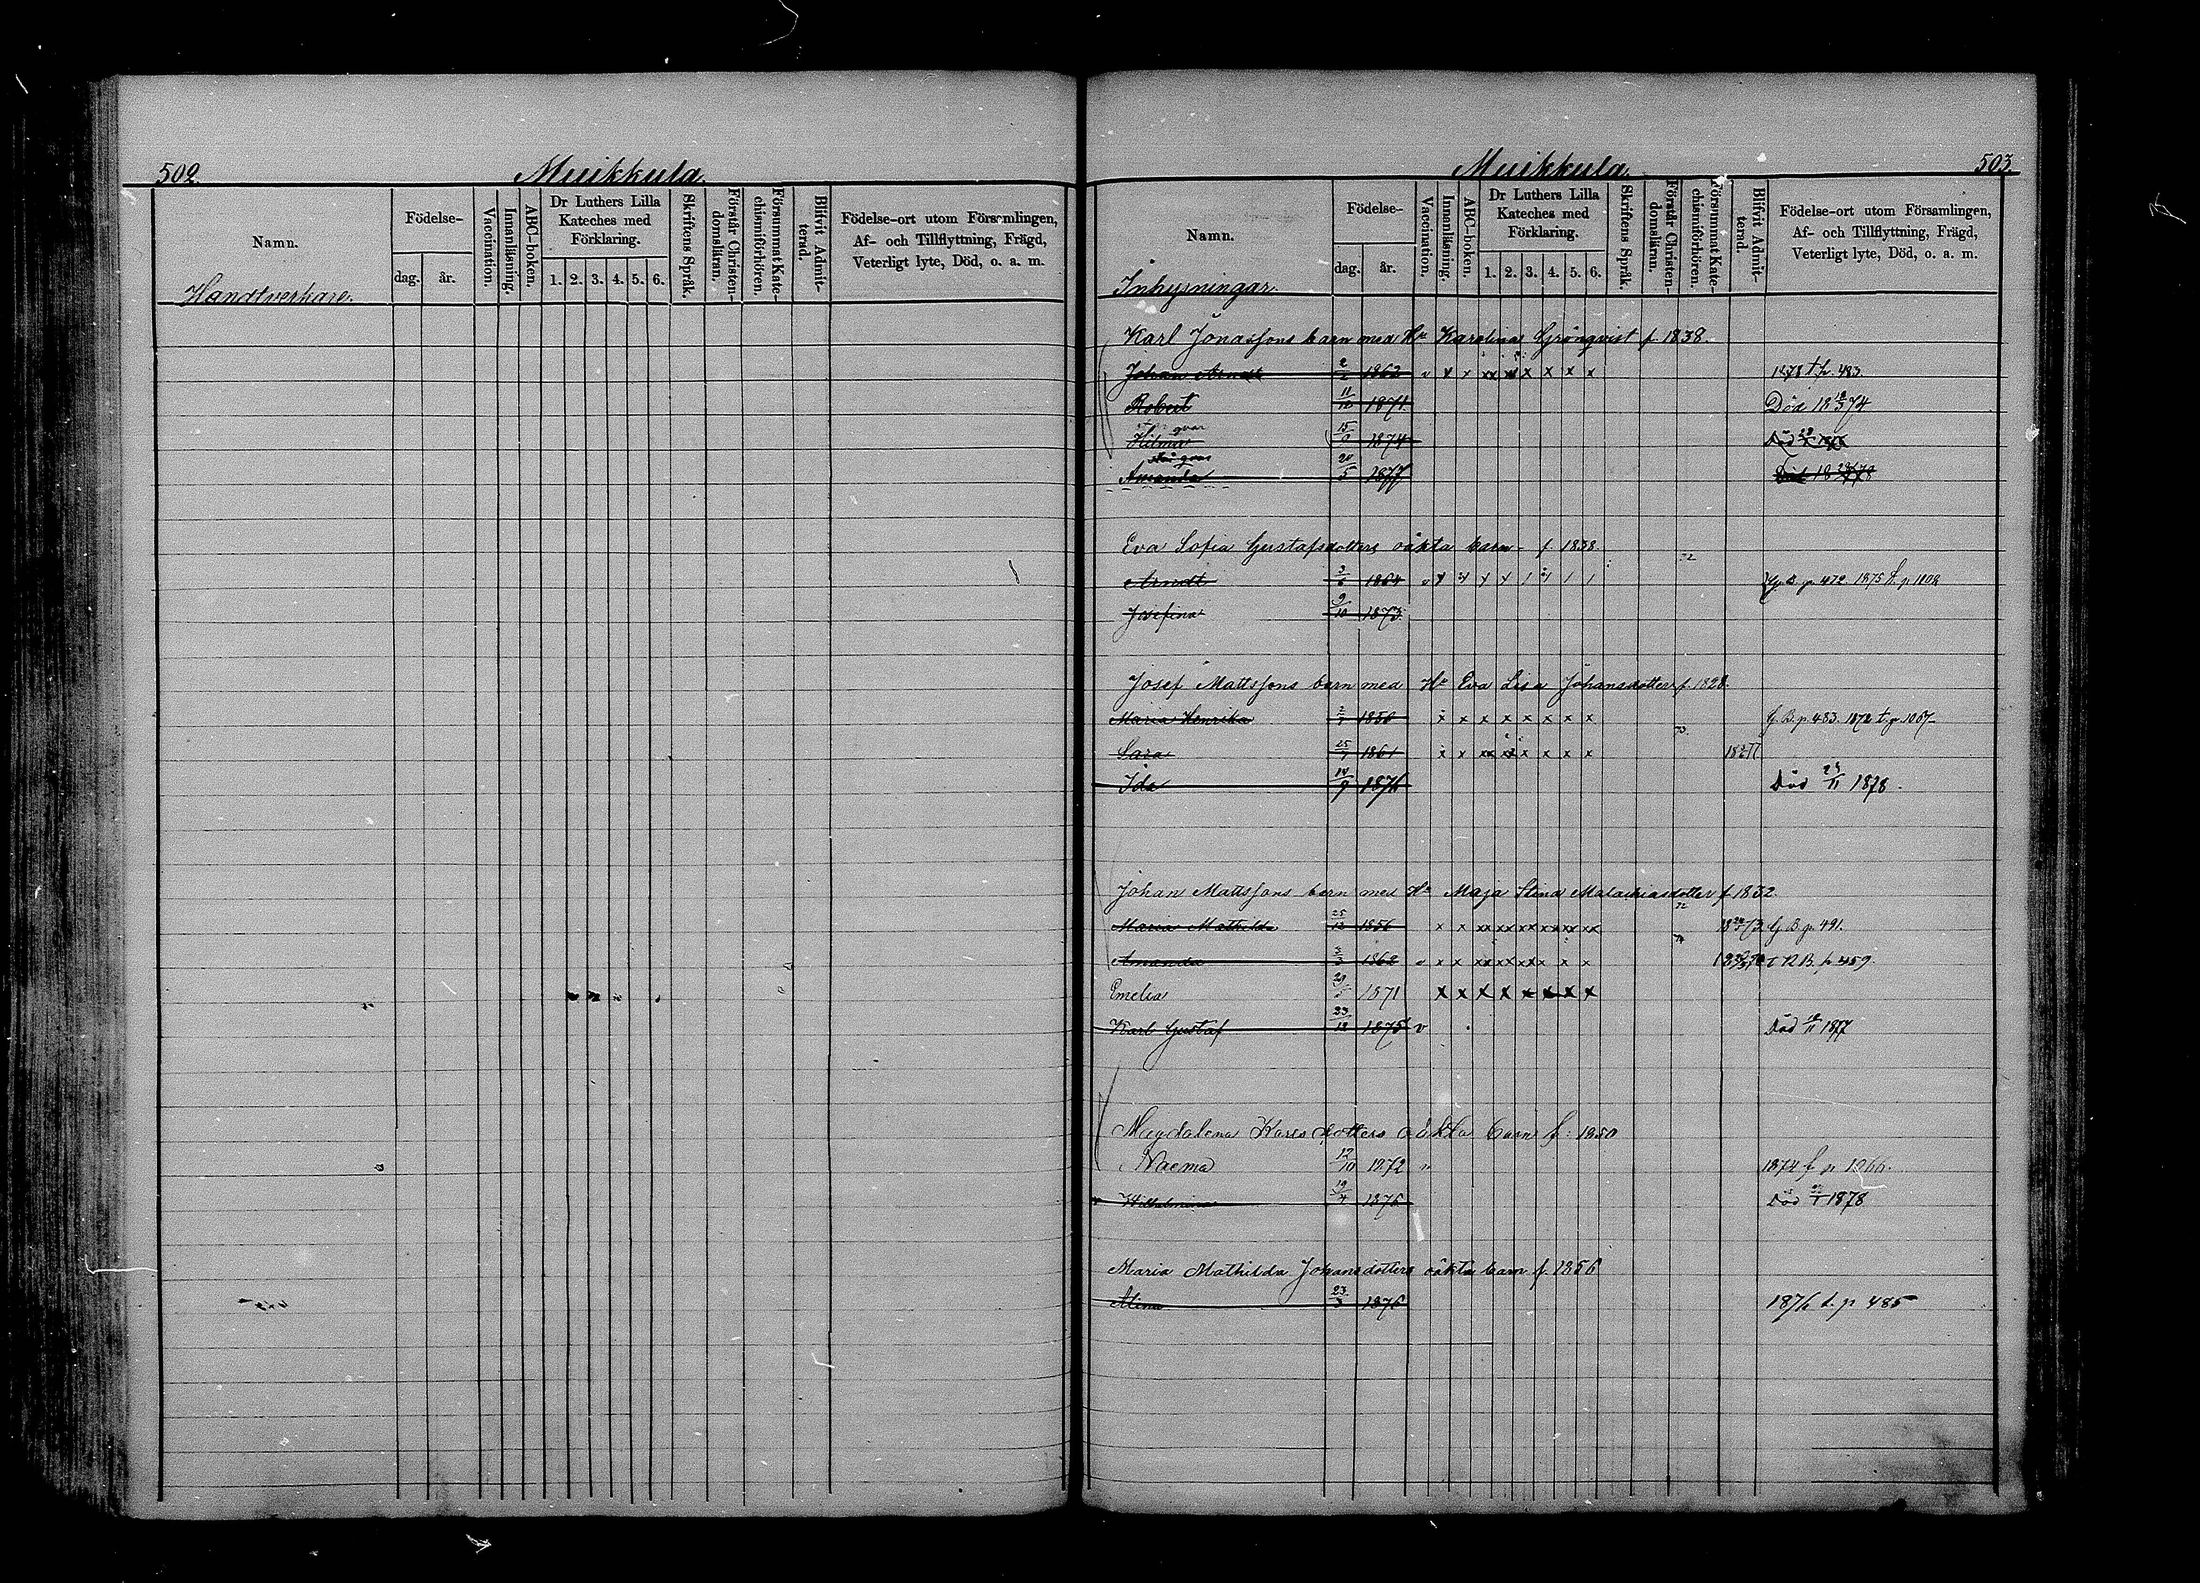 502.
Muikkula.
Namn.
Födelse-
dag. år.
Vaccination.
Innanläsning.
ABC-boken.
Dr Luthers Lilla Kateches med Förklaring.
1. 2. 3. 4. 5. 6.
Skriftens Språk.
Förstår Christendomsläran.
Försummat Katechismiförhören.
Blifvit Admitterad.
Födelse-ort utom Församlingen,
Af- och Tillflyttning, Frägd,
Veterligt lyte, Död, o. a. m.
Handtverkare.
Muikkula.
503.
Namn.
Födelse-
dag. år.
Vaccination.
Innanläsning.
ABC-boken.
Dr Luthers Lilla Kateches med Förklaring.
1. 2. 3. 4. 5. 6.
Skriftens Språk.
Förstår Christendomsläran.
Försummat Katechismiförhören.
Blifvit Admitterad.
Födelse-ort utom Församlingen,
Af- och Tillflyttning, Frägd,
Veterligt lyte, Död, o. a. m.
Inhysningar.
Karl Jonassons barn med Hu Karolina Grönqvist f. 1838.
Johan 1862 v x x xx x x x x x 1878 t.p. 483.
Robert 11/12 1871 Död 18 74
Hilma 15/9 1874 Död
Amanda 20/5 1877
Eva Sofia Gustafsdotters oäkta barn - f. 1838.
Arndt 3/6 1864 G. B. p. 472. 1875 t. p. 1802
Josefina 9/10 1873
Josef Mattssons barn med Hu Eva Lisa Johansdotter f. 1828.
Maria Henrika 1850 x x x x x x x x G. B. p. 483. 1872 t. p. 1057
Sara 25/7 1861 x x xx x x x x x
Ida 10/9 1876 Död 24/11 1878.
Johan Mattssons barn med Hu Maja Stina Malachiasdotter f. 1832.
72
Maria Mathilda 25/12 1856 x x xx xx xx xx xx xx G. B. p. 491.
Amanda 3/3 1862 v x x xx xx xx x x x N B. p. 459.
Emelia 29/5 1871 x x x x x x x x
Karl Gustaf 23/12 1875 v Död 1877
Magdalena Karlsdotters oäkta barn f. 1850
Naema 12/10 1872 v 1874 f p 1066.
Wilhelmina 19/4 1876 Död 1878
Maria Mathilda Johansdotters oäkta barn f. 1856
Alina 23/3 1876 1876 t. p 485